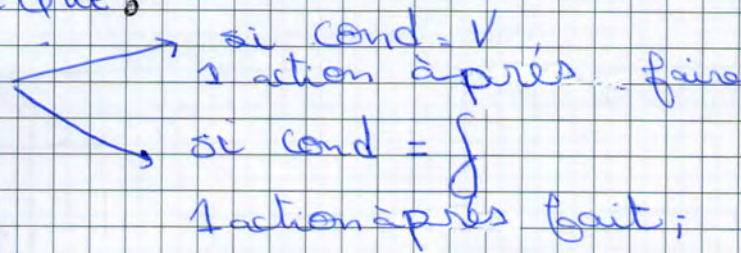 si cond = V
1 action àprés faire
si cond = f
1 action àprés fait;